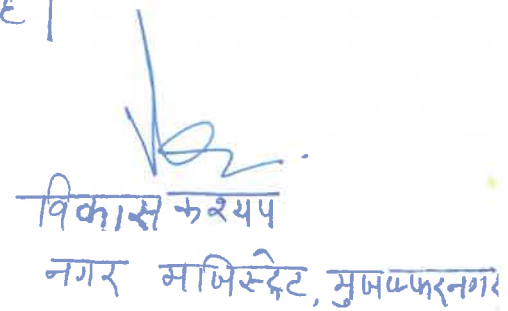 है।
विकास कश्यप
नगर मजिस्ट्रेट, मुजफ्फरनगर